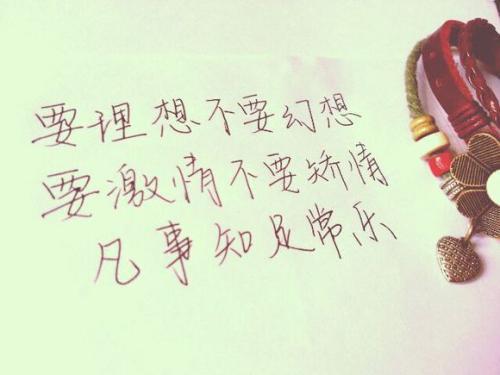 要理想不要幻想
要激情不要矫情
凡事知足常乐